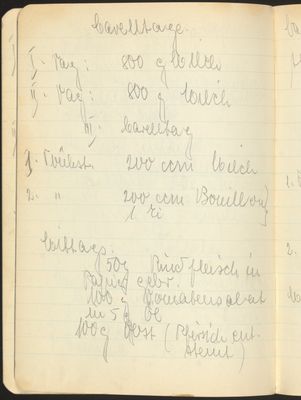 Carelltage.
I. Tag: 800 g Milch
II. Tag: 800 g Milch
III. Carelltag
1. Frühst. 200 ccm Milch
2. " 200 ccm Bouillon
1 Ei
Mittags:
50g Rindfleisch in
Papier gebr.
100 g Tomatensalat
in 5 g Öl
100g Obst (Pfirsich ent-
steint)